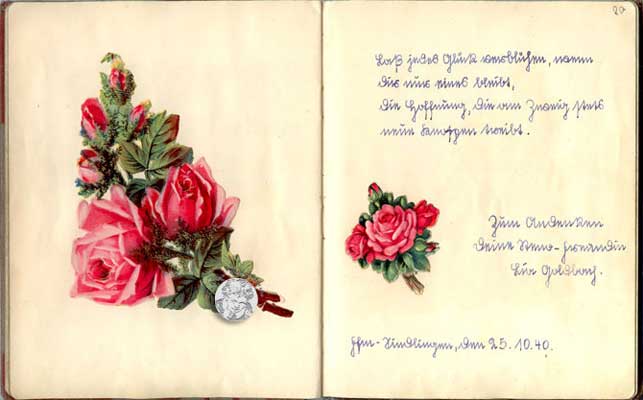 20
Laß jedes Glück verblühen, wenn
dir nur eines bleibt,
die Hoffnung, die am Zweig stets
neue Knospen treibt.
Zum Andenken
Deine Freundin
Goldbach.
Ffm-Sindlingen, den 25.10.40.